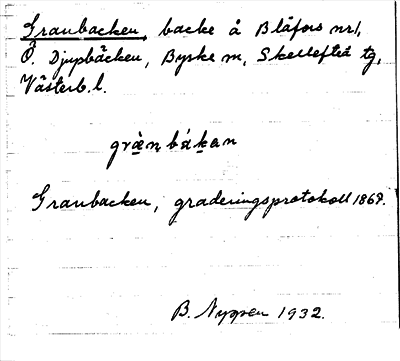 Granbacken, backe å Blåfors nr 1,
Ö. Djupbäcken, Byske sn, Skellefteå tg,
Västerb. l.
grä̀nbákan
Granbacken, graderingsprotokoll 1867.
B. Nyman 1932.